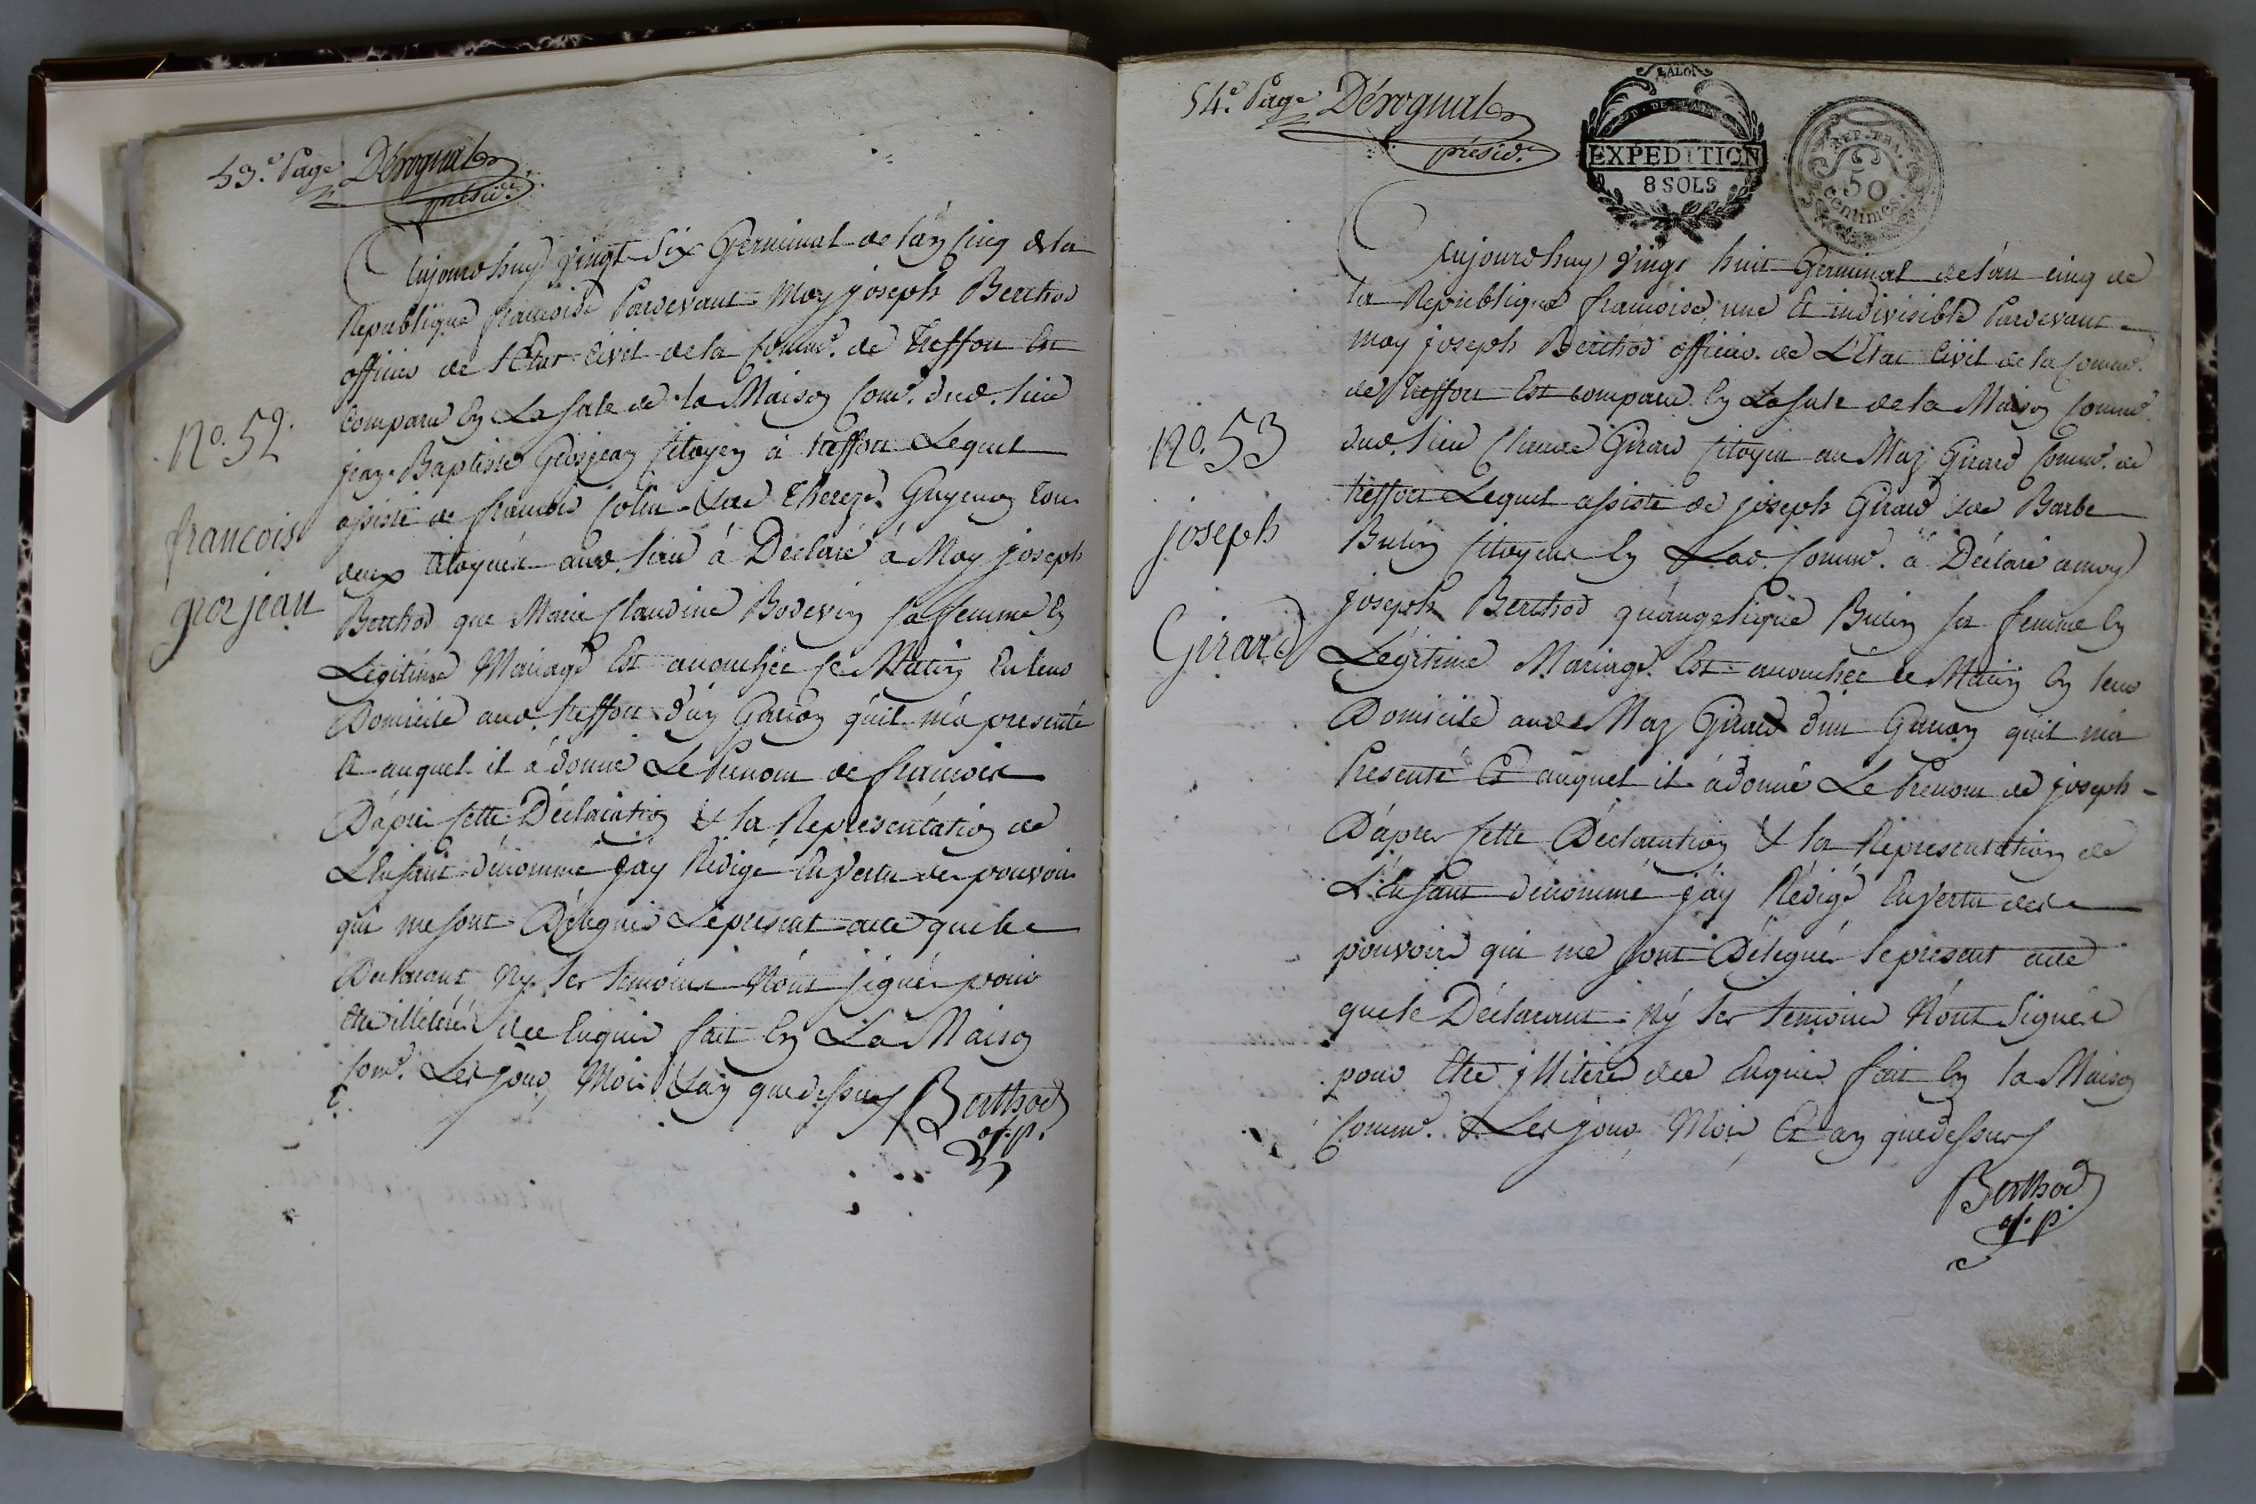 53.e Page Dérognat
présid.t
Aujourd'huy vingt Six Germinal de l'an Cinq de la
Republique francoise Pardevant Moy joseph Berthod
officier de l'Etat Civil de la Commne. de Treffort Est
Comparu En La Sale de la Maison Comne. dud. lieu
jean Baptiste Grosjean Citoyen à treffort Lequel
assisté de francois Colin & de Thereze Guyenon tou
deux Citoyens aud. lieu à Déclaré à Moy joseph
Berthod que Marie Claudine Bodevin sa femme En
Légitime Mariage Est accouchée ce Matin En leur
Domicile aud. treffort d'un Garcon qu'il m'a presenté
Et auquel il à donné Le Prenom de francois
D'après Cette Déclaration & la Representation de
L'Enfant dénommé j'ay Rédigé En vertu des pouvoirs
qui me sont Délegués Le present acte que le
Déclarant Ny Ses temoins N'ont signés pour
Etre illétérés de ce Enquis fait En La Maison
Comne. Les jour, Mois & an que dessus Berthod
of. p.
No. 52.
francois
grosjean
54.e Page Dérognat
présid.t
EXPEDITION
8 SOLS
REP. FRA.
50
Centimes
Aujourd'huy vingt huit Germinal de l'an cinq de
la Republique francoise une Et indivisible Pardevant
moy joseph Berthod officier de L'Etat Civil de la Commne.
de Treffort Est comparu En La Sale de la Maison Commne.
dud. lieu Claude Girard Citoyen au Maz Girard Commne. de
treffort Lequel assisté de joseph Girard & de Barbe
Butin Citoyens En Lad. Commne. à Déclaré a moy
joseph Berthod qu'angelique Butin sa femme En
Légitime Mariage Est accouchée ce Matin En leur
Domicile aud. Maz Girard d'un Garcon qu'il m'a
Presenté Et auquel il à donné Le Prenom de joseph
D'après Cette Déclaration & la Representation de
L'Enfant dénommé j'ay Rédigé En vertu des
pouvoirs qui me sont Délegués le present acte
que le Déclarant Ny Ses temoins N'ont Signés
pour Etre jlliterés de ce Enquis fait En la Maison
Commne. & Les jour, Mois, Et an que dessus
Berthod
of. p.
No. 53
joseph
Girard